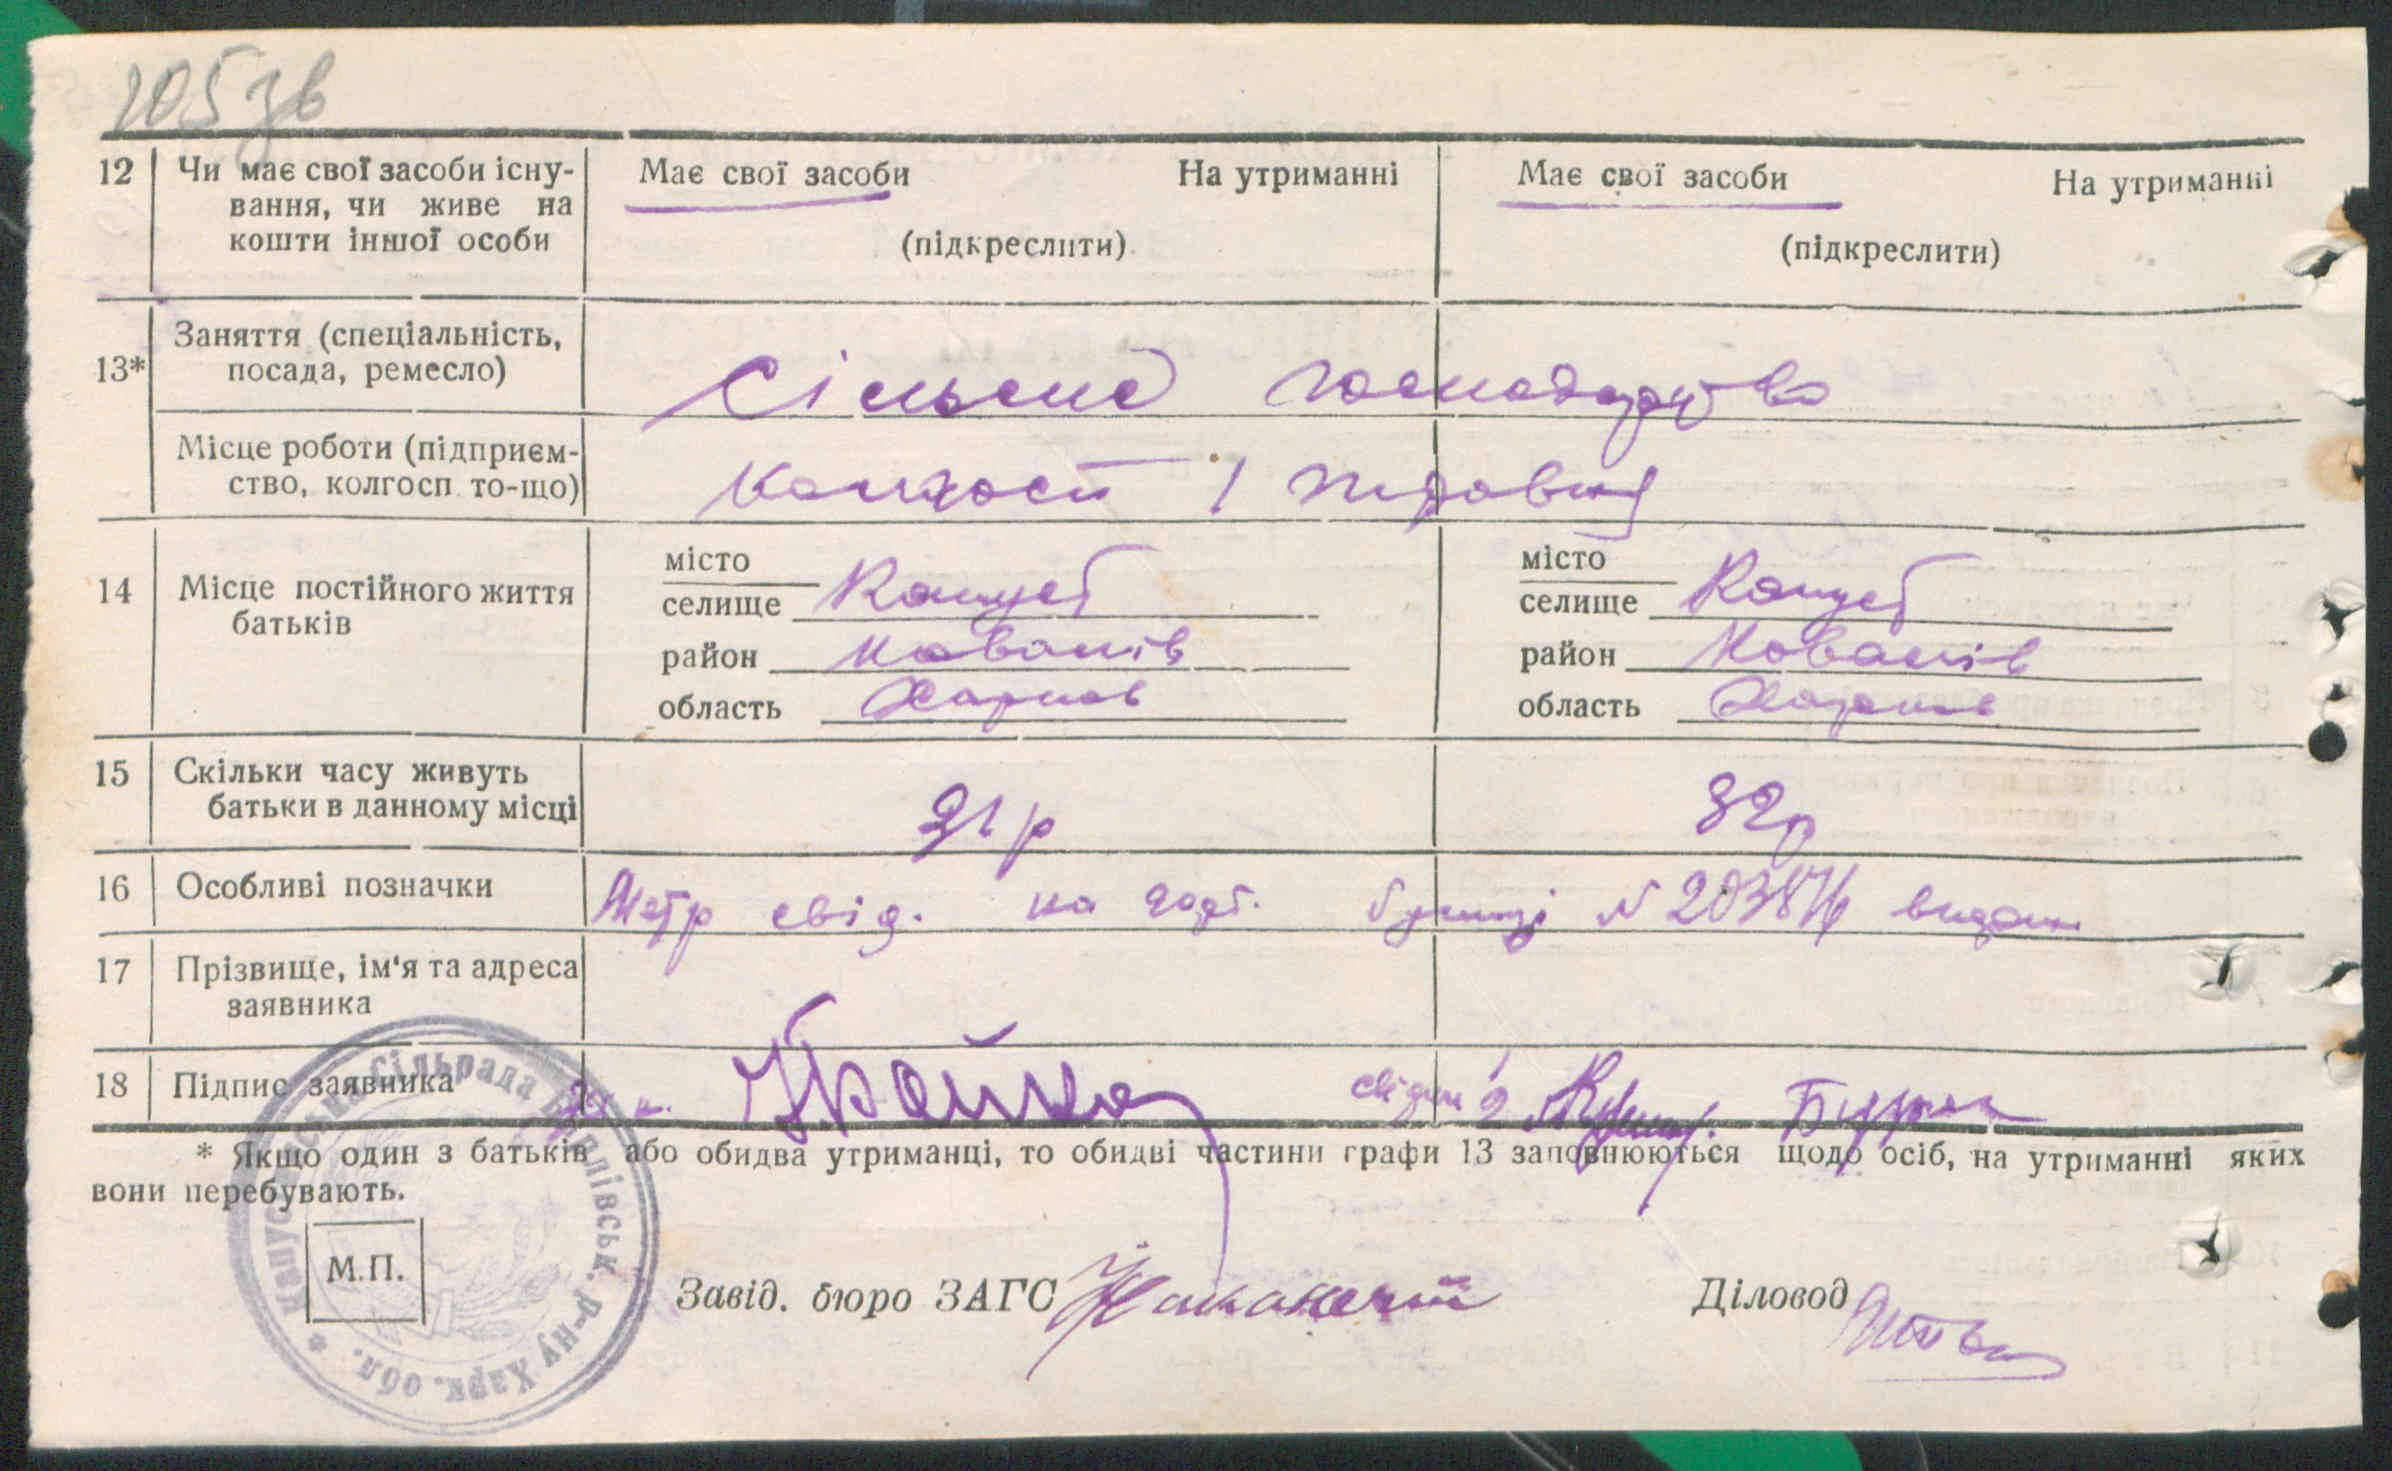 105 зв
12 Чи має свої засоби існу- Має свої засоби На утриманні Має свої засоби На утриманні
вання, чи живе на
кошти іншої особи (підкреслити) (підкреслити)
Заняття (спеціальність,
13* посада, ремесло) Сільське господарство
Місце роботи (підприєм-
ство, колгосп то-що) Колгосп 1 травня
місто місто
14 Місце постійного життя селище Капуст селище Капуст
батьків
район Ковалів район Ковалів
область Харков область Харков
15 Скільки часу живуть
батьки в данному місці 31 р 32 р
16 Особливі позначки Метр свід. на N 203876 видан
17 Прізвище, ім'я та адреса
заявника
18 Підпис заявника
* Якщо один з батьків або обидва утриманці, то обидві частини графи 13 заповнюються щодо осіб, на утриманні яких
вони перебувають.
М.П.
Завід. бюро ЗАГС Діловод
сільрада р-ну Харк. обл.